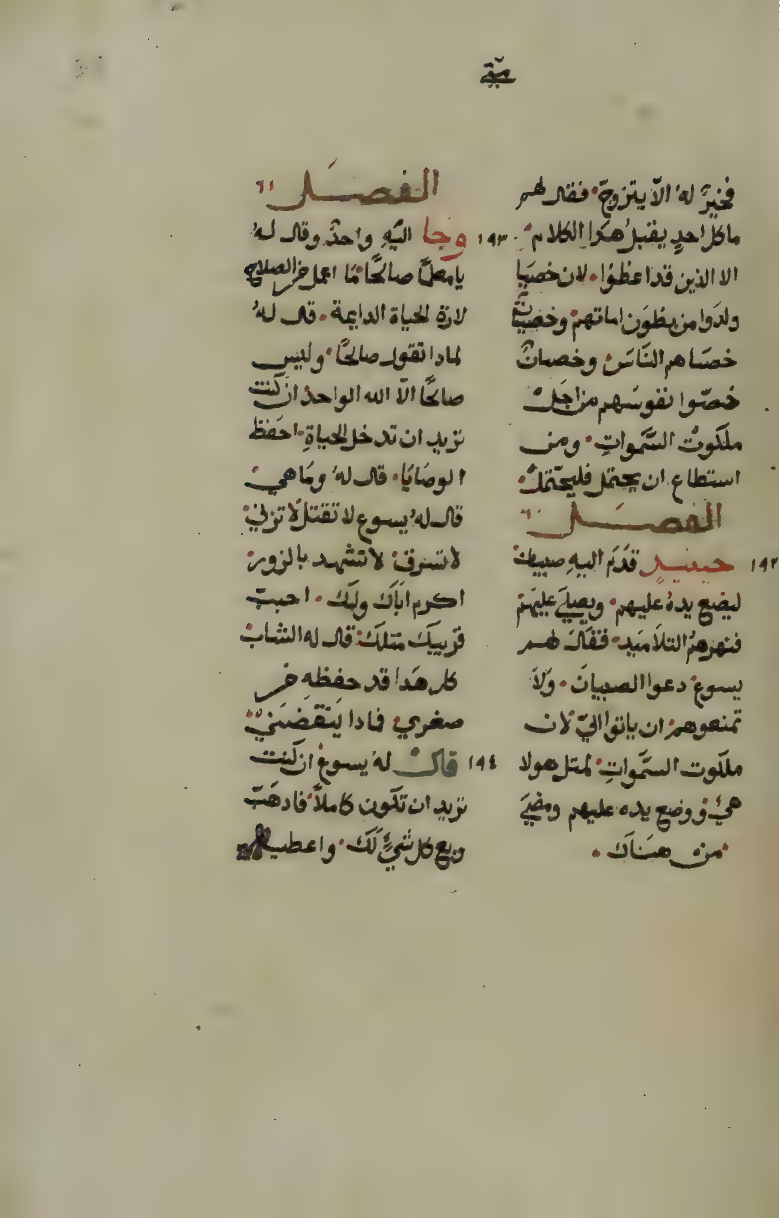 فخيرٌ لهُ الّا يتزوج. فقال لهم
ما كل احدٍ يقبل هذا الكلام.
الا الذين قد اعطُوا. لان خصيا
ولدوا من بطون اماتهم وخصيانٌ
خصاهم الناس وخصيانٌ
خصّوا نفوسهم من اجل
ملكوت السَّموات. ومن
استطاع ان يحتمل فليحتمل.
الفصل ٦٠
١٩٢ حينيدٍ قدّم اليهِ صبيان
ليضع يدهُ عليهم. ويصلي عليهم
فنهرهم التلاميد. فقال لهم
يسوع دعوا الصبيان. ولا
تمنعوهم ان ياتوا اليّ لان
ملكوت السّموات لمثل هولا
هي ووضع يده عليهم ومضي
من هناك.
الفصل ٦١
١٩٣ وجا اليهِ واحدٌ وقال لهُ
يا معلمًا صالحًا ما اعمل من الصلاح
لارث الحياة الدايمة. قال لهُ
لمادا تقول صالحًا. وليس
صالحًا الّا الله الواحد ان كنت
تريد ان تدخل الحياةِ احفظ
الوصايا. قال لهُ وما هي
قال لهُ يسوع لا تقتل لا تزني
لا تسرق لا تشهد بالزور
اكرم اباك وامك. احبب
قريبك مثلك قال له الشاب
كل هدا قد حفظته من
صغري فمادا ينقصني
١٩٤ قال لهُ يسوع ان كنت
تريد ان تكون كاملاً فادهب
وبع كل شيءٍ لك. واعطيه